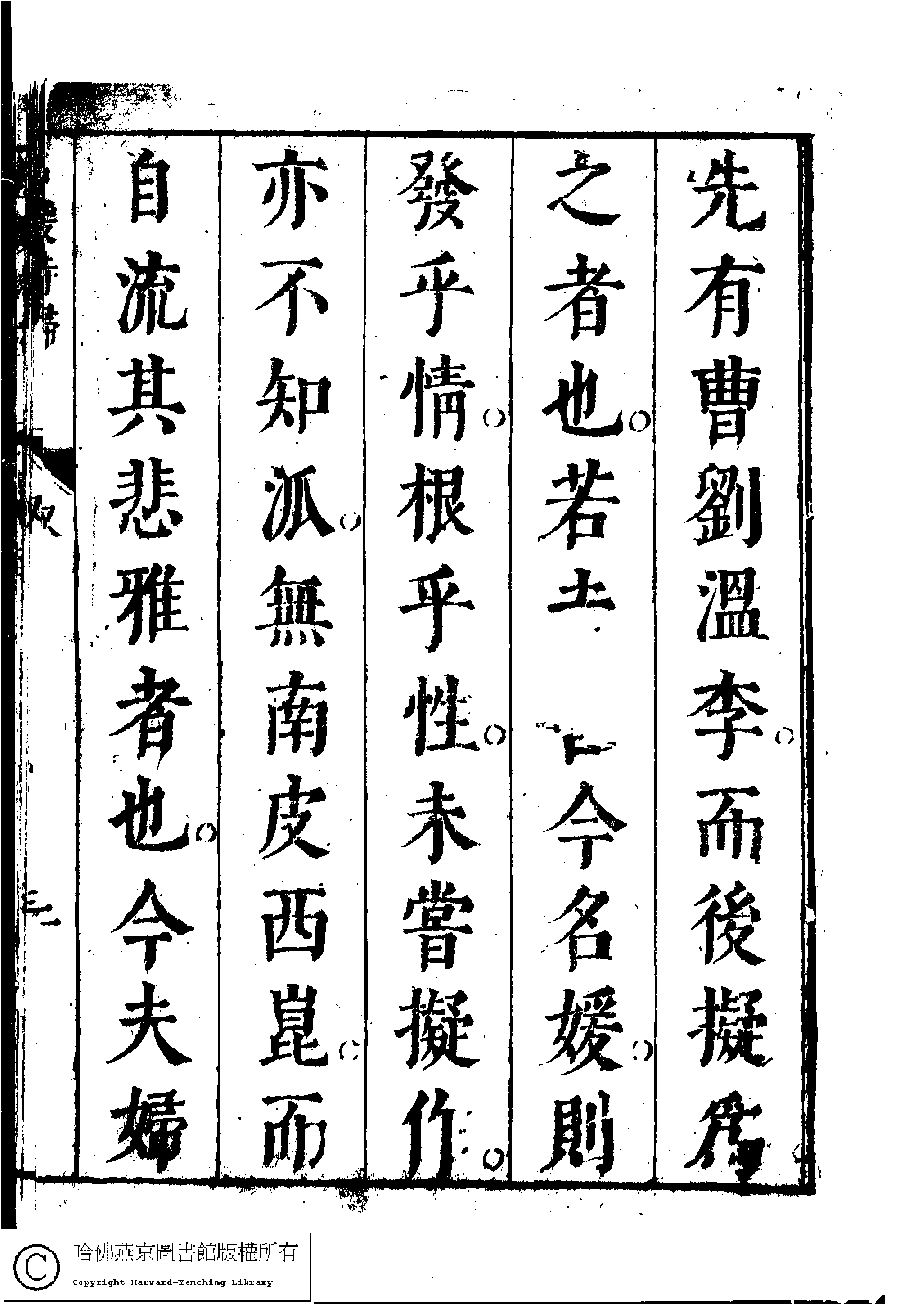 先有曹劉溫李而後擬為
之者也若今名媛則
發乎情根乎性未嘗擬作
亦不知派無南皮西崑而
自流其悲雅者也今夫婦
媛詩歸
叙
哈佛燕京圖書館版權所有
Copyright Harvard-Yenching Library